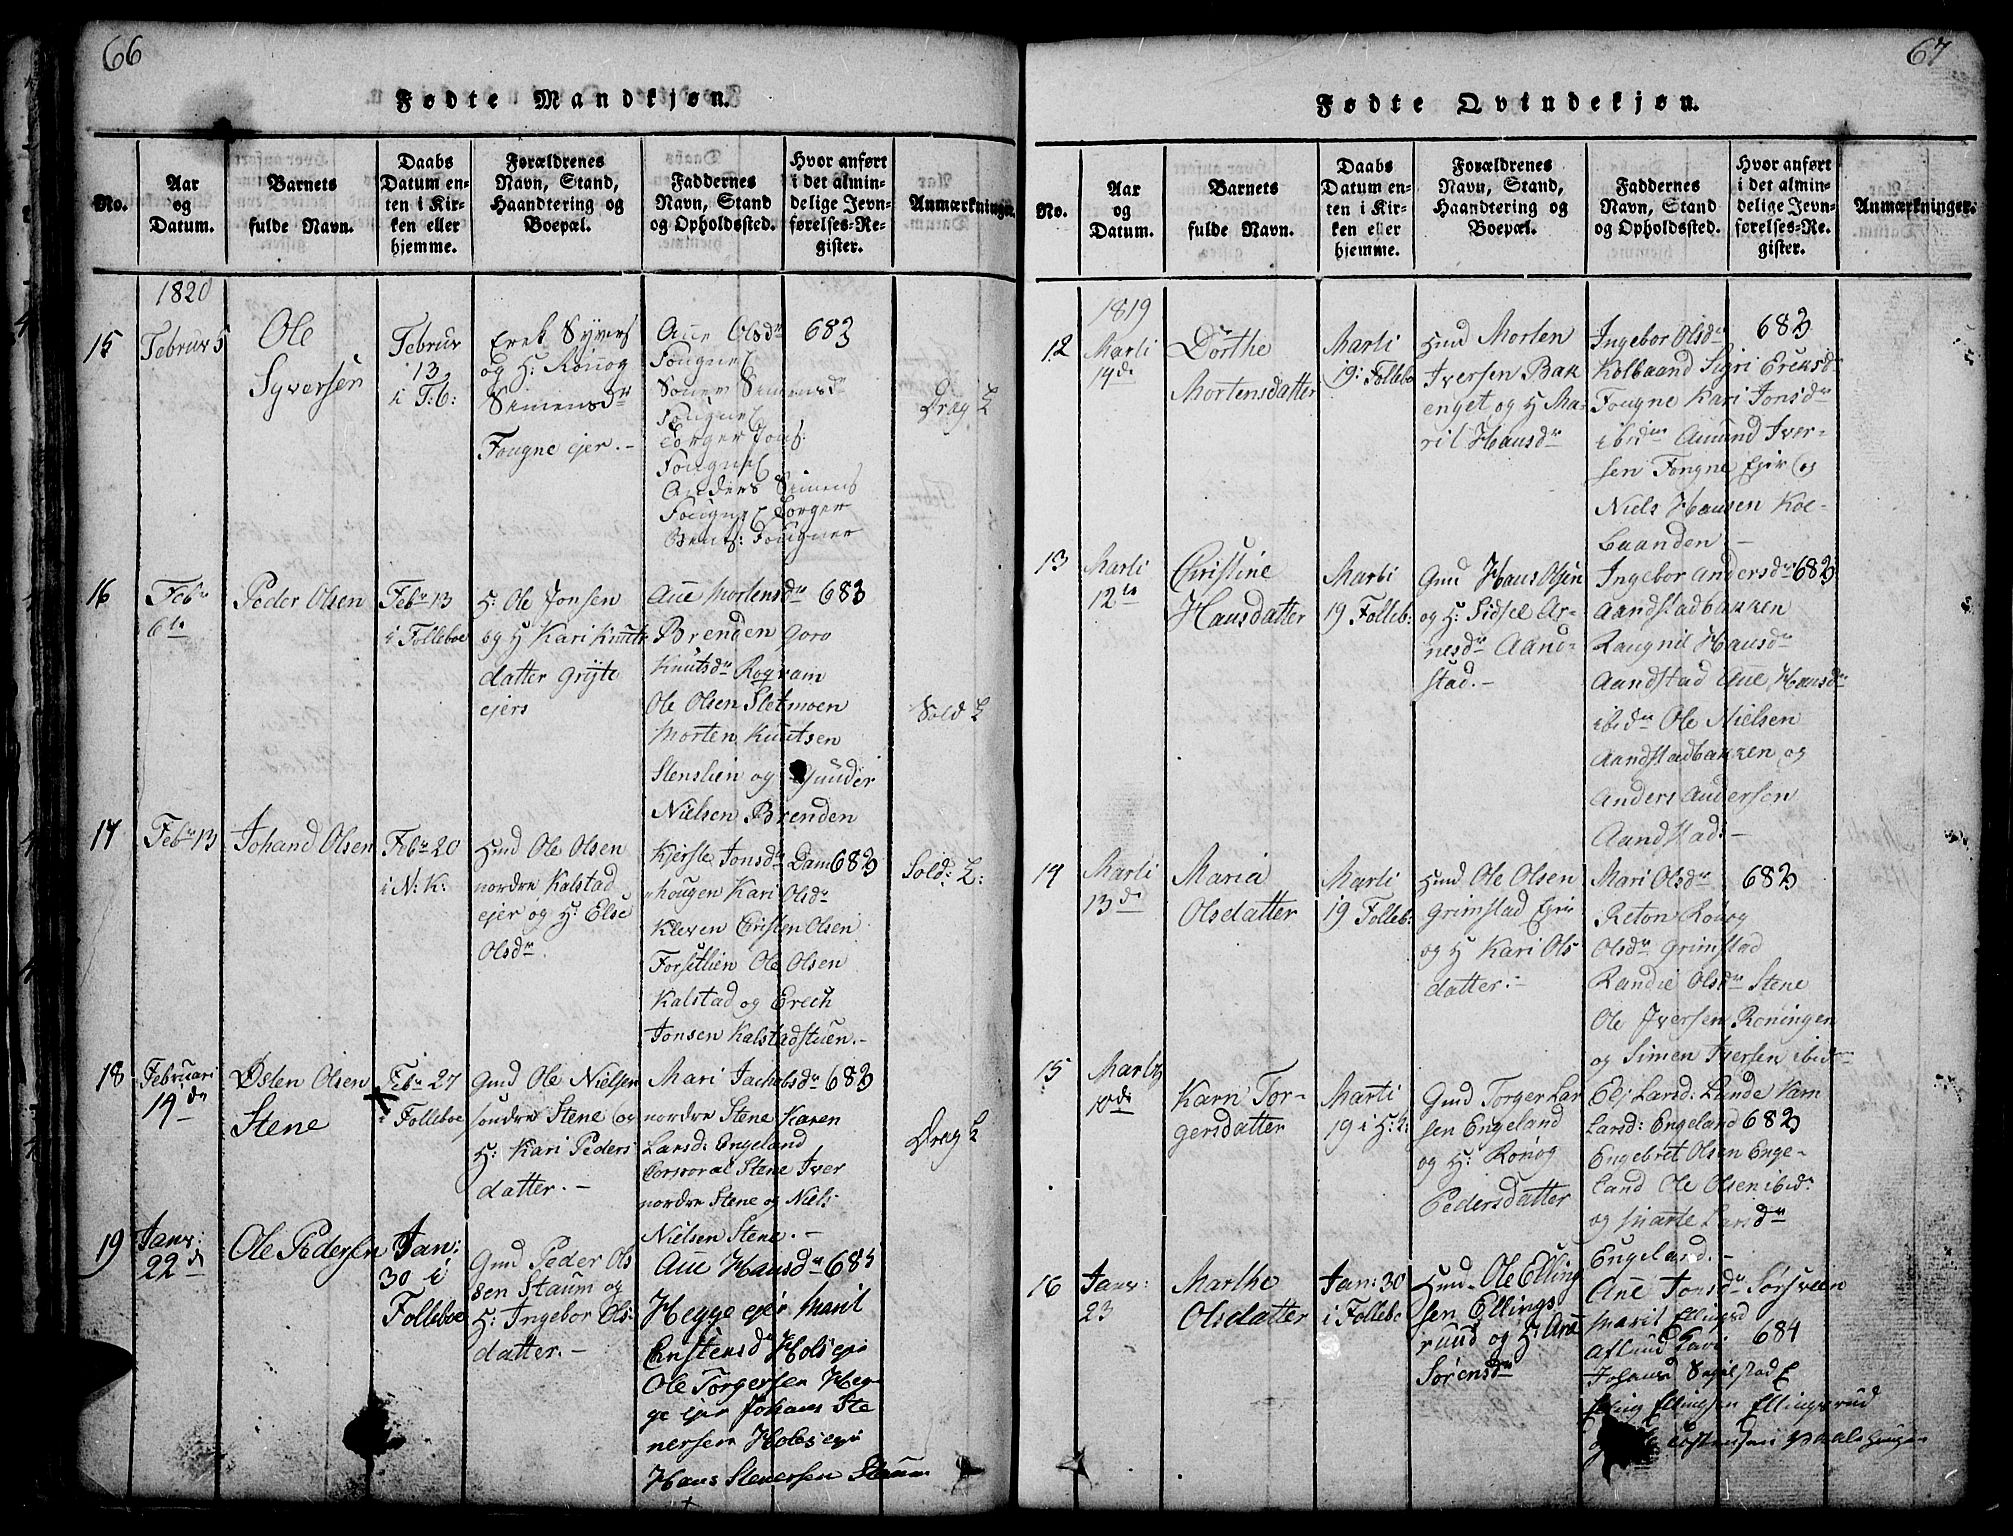 66
Fødte Mandkjøn.
No.
Aar
og
Datum.
Barnets
fulde Navn.
Daabs
Datum en-
ten i Kir-
ken eller
hjemme.
Forældrenes
Navn, Stand,
Haandtering og
Boepæl.
Faddernes
Navn, Stand
og Opholdssted.
Hvor anført
i det almin-
delige Jevn-
førelses-Re-
gister.
Anmærkninger.
1820
15
Februr 5
Ole
Syversen
Februr
13
i F:b:
Erek Syvers
og H: Rönog
Simensdr
Fougne ejer.-
Ane Olsdr
Fougne
Simensdr
Fougne
Torger Jons:
Fougne
Anders Simens
Fougne Torger
Fougner
683
Drag L
16
Febr
6te
Peder Olsen
Febr 13
i Folleboe
H: Ole Jonsen
og H Kari Knuts
datter Gryte
ejers
Ane Mortensdr
Brenden Goro
Knutsdr Rogram
Ole Olsen Sletmoen
Morten Knutsen
Stenslien og Gunder
Nielsen Brenden
683
Sold L
17
Febr 13
Johand Olsen
Febr 20
i N: K:
Hmd Ole Olsen
nordre Kalstad
ejer og H: Else
Olsdr
Kjerste Jonsdr Dam
hougen Kari Olsdr
Kleven Cristen Olsen
Forsetlien Ole Olsen
Kalstad og Erech
Jonsen Kalstadstuen.-
683
Sold: L:
18
Februari
14de
Østen Olsen
Stene
Febr 27
Folleboe
Gmd Ole Nielsen
søndre Stene og
H: Kari Peders
datter.-
Mari Jachobsdr
nordre Stene Karen
Larsd: Engeland
Corporal Stene Iver
nordre Stene og Niels
Nielsen Stene.-
683
Drag L
19
Janr:
22de
Ole Pedersen
Jan:
30 i
Folleboe
Gmd Peder Ols
sen Staum og
H: Ingebor Ols:
datter.-
Ane Hansdr
Hegge ejer Marit
Enstensd Hols eje
Ole Torgersen Heg-
ge ejer Johans Ste
nersen Hols eje
Hans Stenersen Staum
685
67
Fødte Qvindekjøn.
No.
Aar
og
Datum.
Barnets
fulde Navn.
Daabs
Datum en-
ten i Kir-
ken eller
hjemme.
Forældrenes
Navn, Stand,
Haandtering og
Boepæl.
Faddernes
Navn, Stand
og Opholdssted.
Hvor anført
i det almin-
delige Jevn-
førelses-Re-
gister.
Anmærkninger.
1819
12
Marti
14de
Dorthe
Mortensdatter
Marti
19: Follebo
Hmd Morten
Iversen Bak
enget og H Ma-
rit Hansdr
Ingebor Olsdr
Kolbaand Sigri Eriksd
Fougne Kari Jonsdr
ibidm Amund Iver-
sen Fougne Ejer og
Niels Hansen Kol-
baanden.-
683
13
Marti
12te
Christine
Hansdatter
Marti
19 Folleb:
Gmd Hans Olsen
og H: Sidsel Ar-
nesdr Aand-
stad.-
Ingebor Andersdr
Aandstadbakken
Raugnil Hansdr
Aandstad Ane Hansdr
ibidm Ole Nielsen
Aandstadbakken og
Anders Andersen
Aandstad.-
683
14
Marti
13de
Maria
Olsdatter
Marti
19 Folleb:
Hmd Ole Olsen
Grimstad Ejer
og H Kari Ols
datter.-
Mari Olsdr
Reton Ronog
Olsdr Grimstad
Randie Olsdr Stene
Ole Iversen Roningen
og Simen Iversen ibidm
683
15
Marti
10de
Karn Tor-
gersdatter
Marti
19 i H: K:
Gmd Torger Lar
sen Engeland
og H: Ronog
Pedersdatter
Elj Larsd: Lunde Karn
Larsd: Engeland
Engebret Olsen Enge-
land Ole Olsen ibidm
og Marte Larsdr
Engeland.-
683
16
Janr:
23
Marthe
Olsdatter
Jan: 30
i Follebo
Hmd Ole Elling
sen Ellings
ruud og H: Ane
Sørensdr
Ane Jonsdr Sørsveen
Marit Ellingsd
Aslund
Johans
Elling Ellingsen Ellingsrud
684